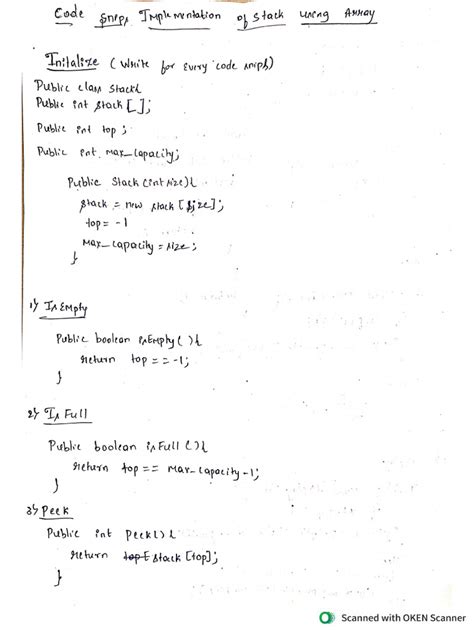 Code Snips Implementation of Stack using Array
Initalize (Write for every code snips)
Public class Stack{
Public int stack[];
Public int top;
Public int max_capacity;
Public Stack(int size){
stack = new stack [size];
top = -1
max_capacity = size;
}
1) Is Empty
Public boolean isEmpty(){
return top == -1;
}
2) Is Full
Public boolean isFull(){
return top == max_capacity-1;
}
3) Peek
Public int Peek(){
return stack [top];
}
Scanned with OKEN Scanner